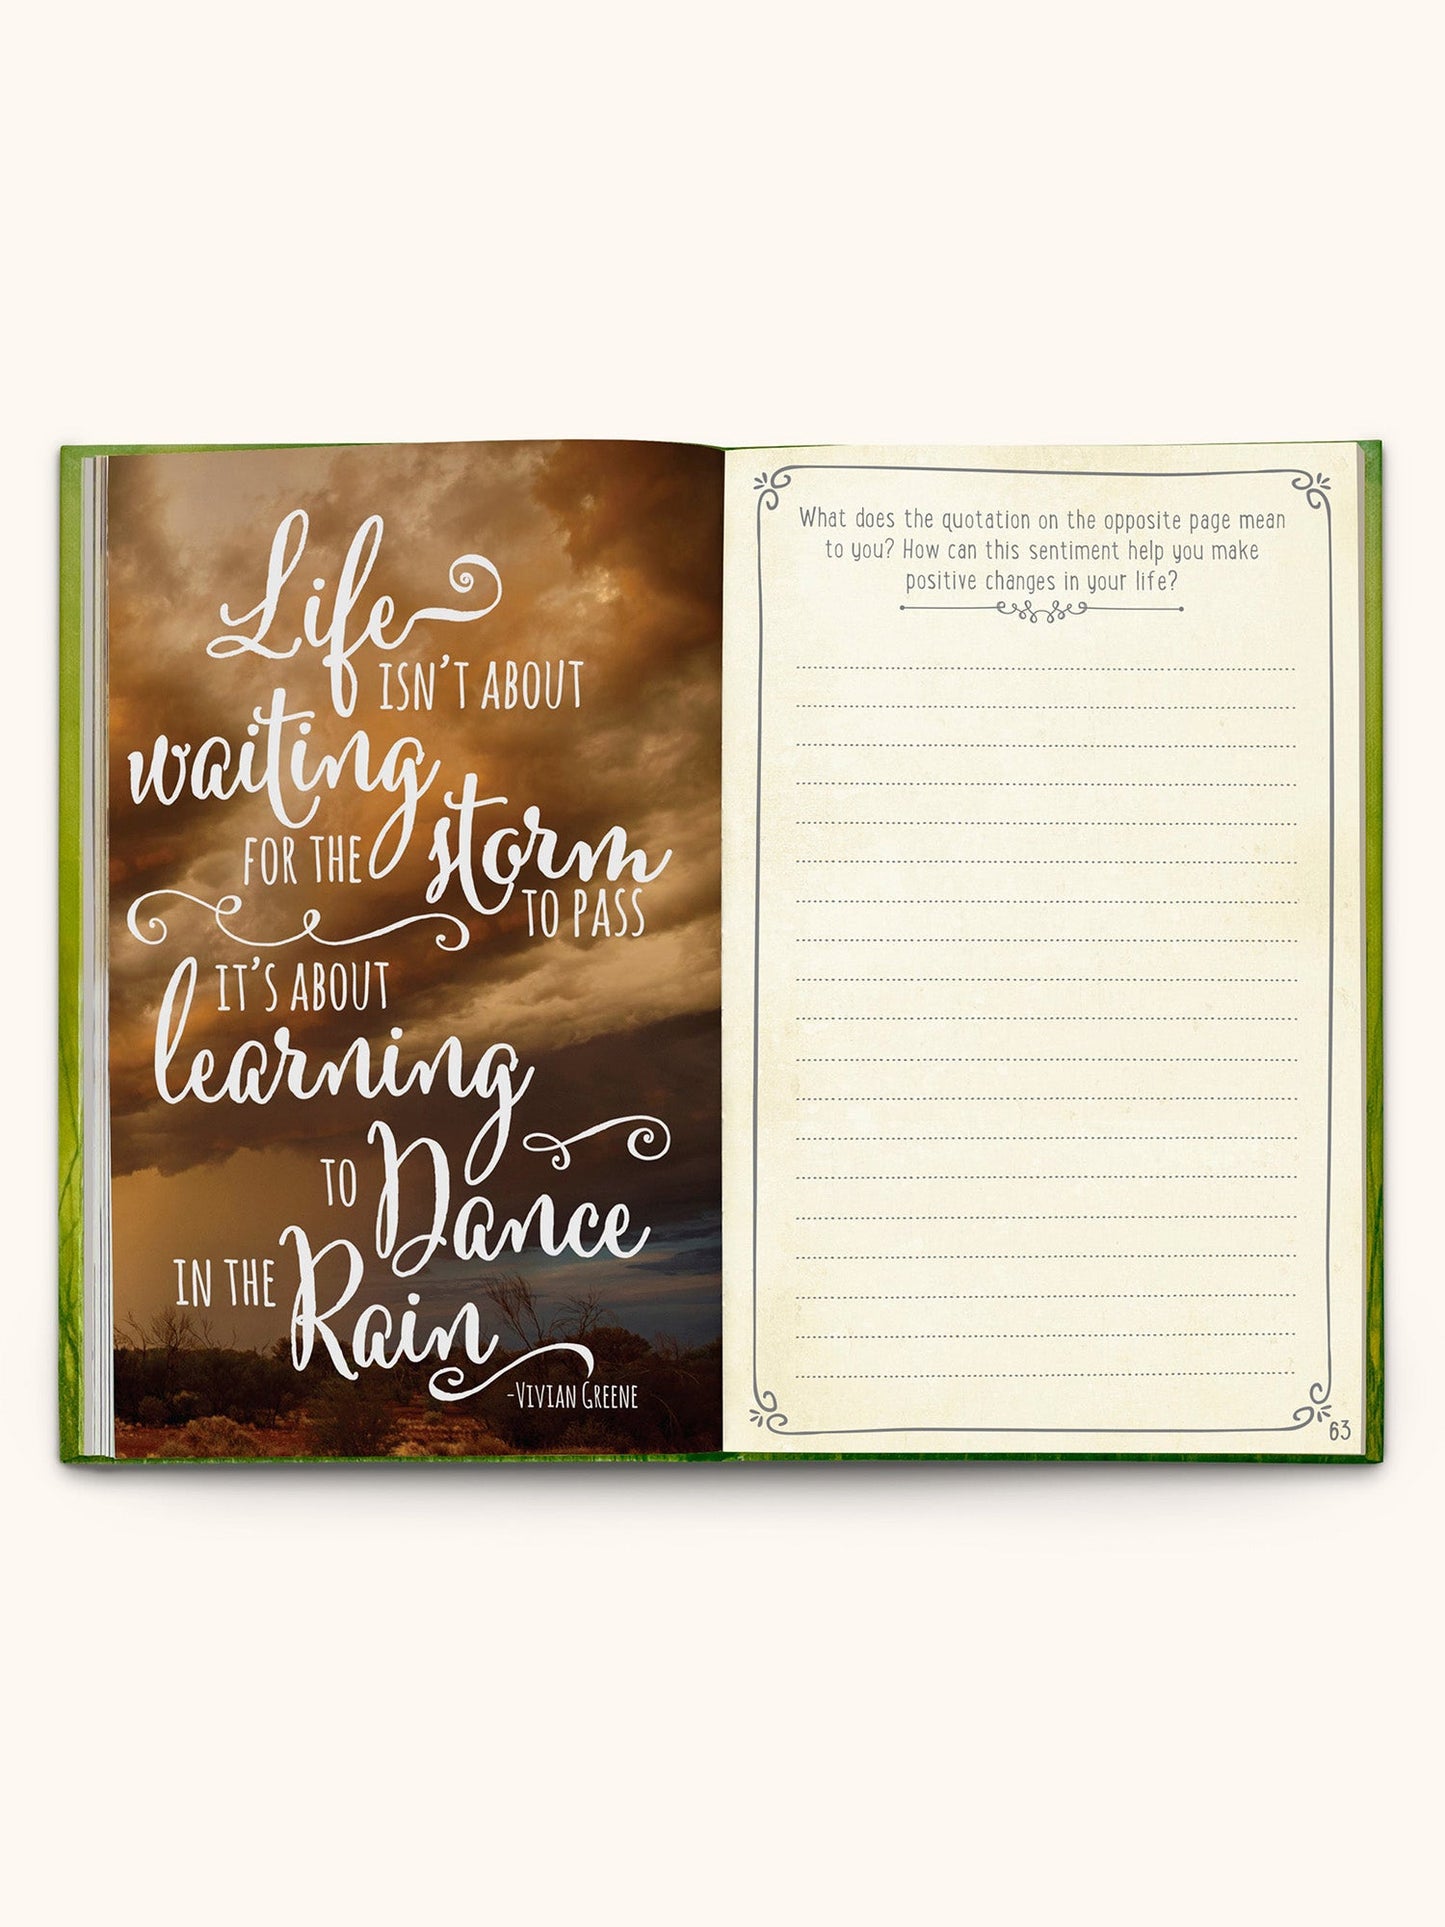 Life
ISN'T ABOUT
waiting
FOR THE storm
TO PASS
IT'S ABOUT
learning
TO Dance
IN THE Rain
-VIVIAN GREENE
What does the quotation on the opposite page mean
to you? How can this sentiment help you make
positive changes in your life?
63